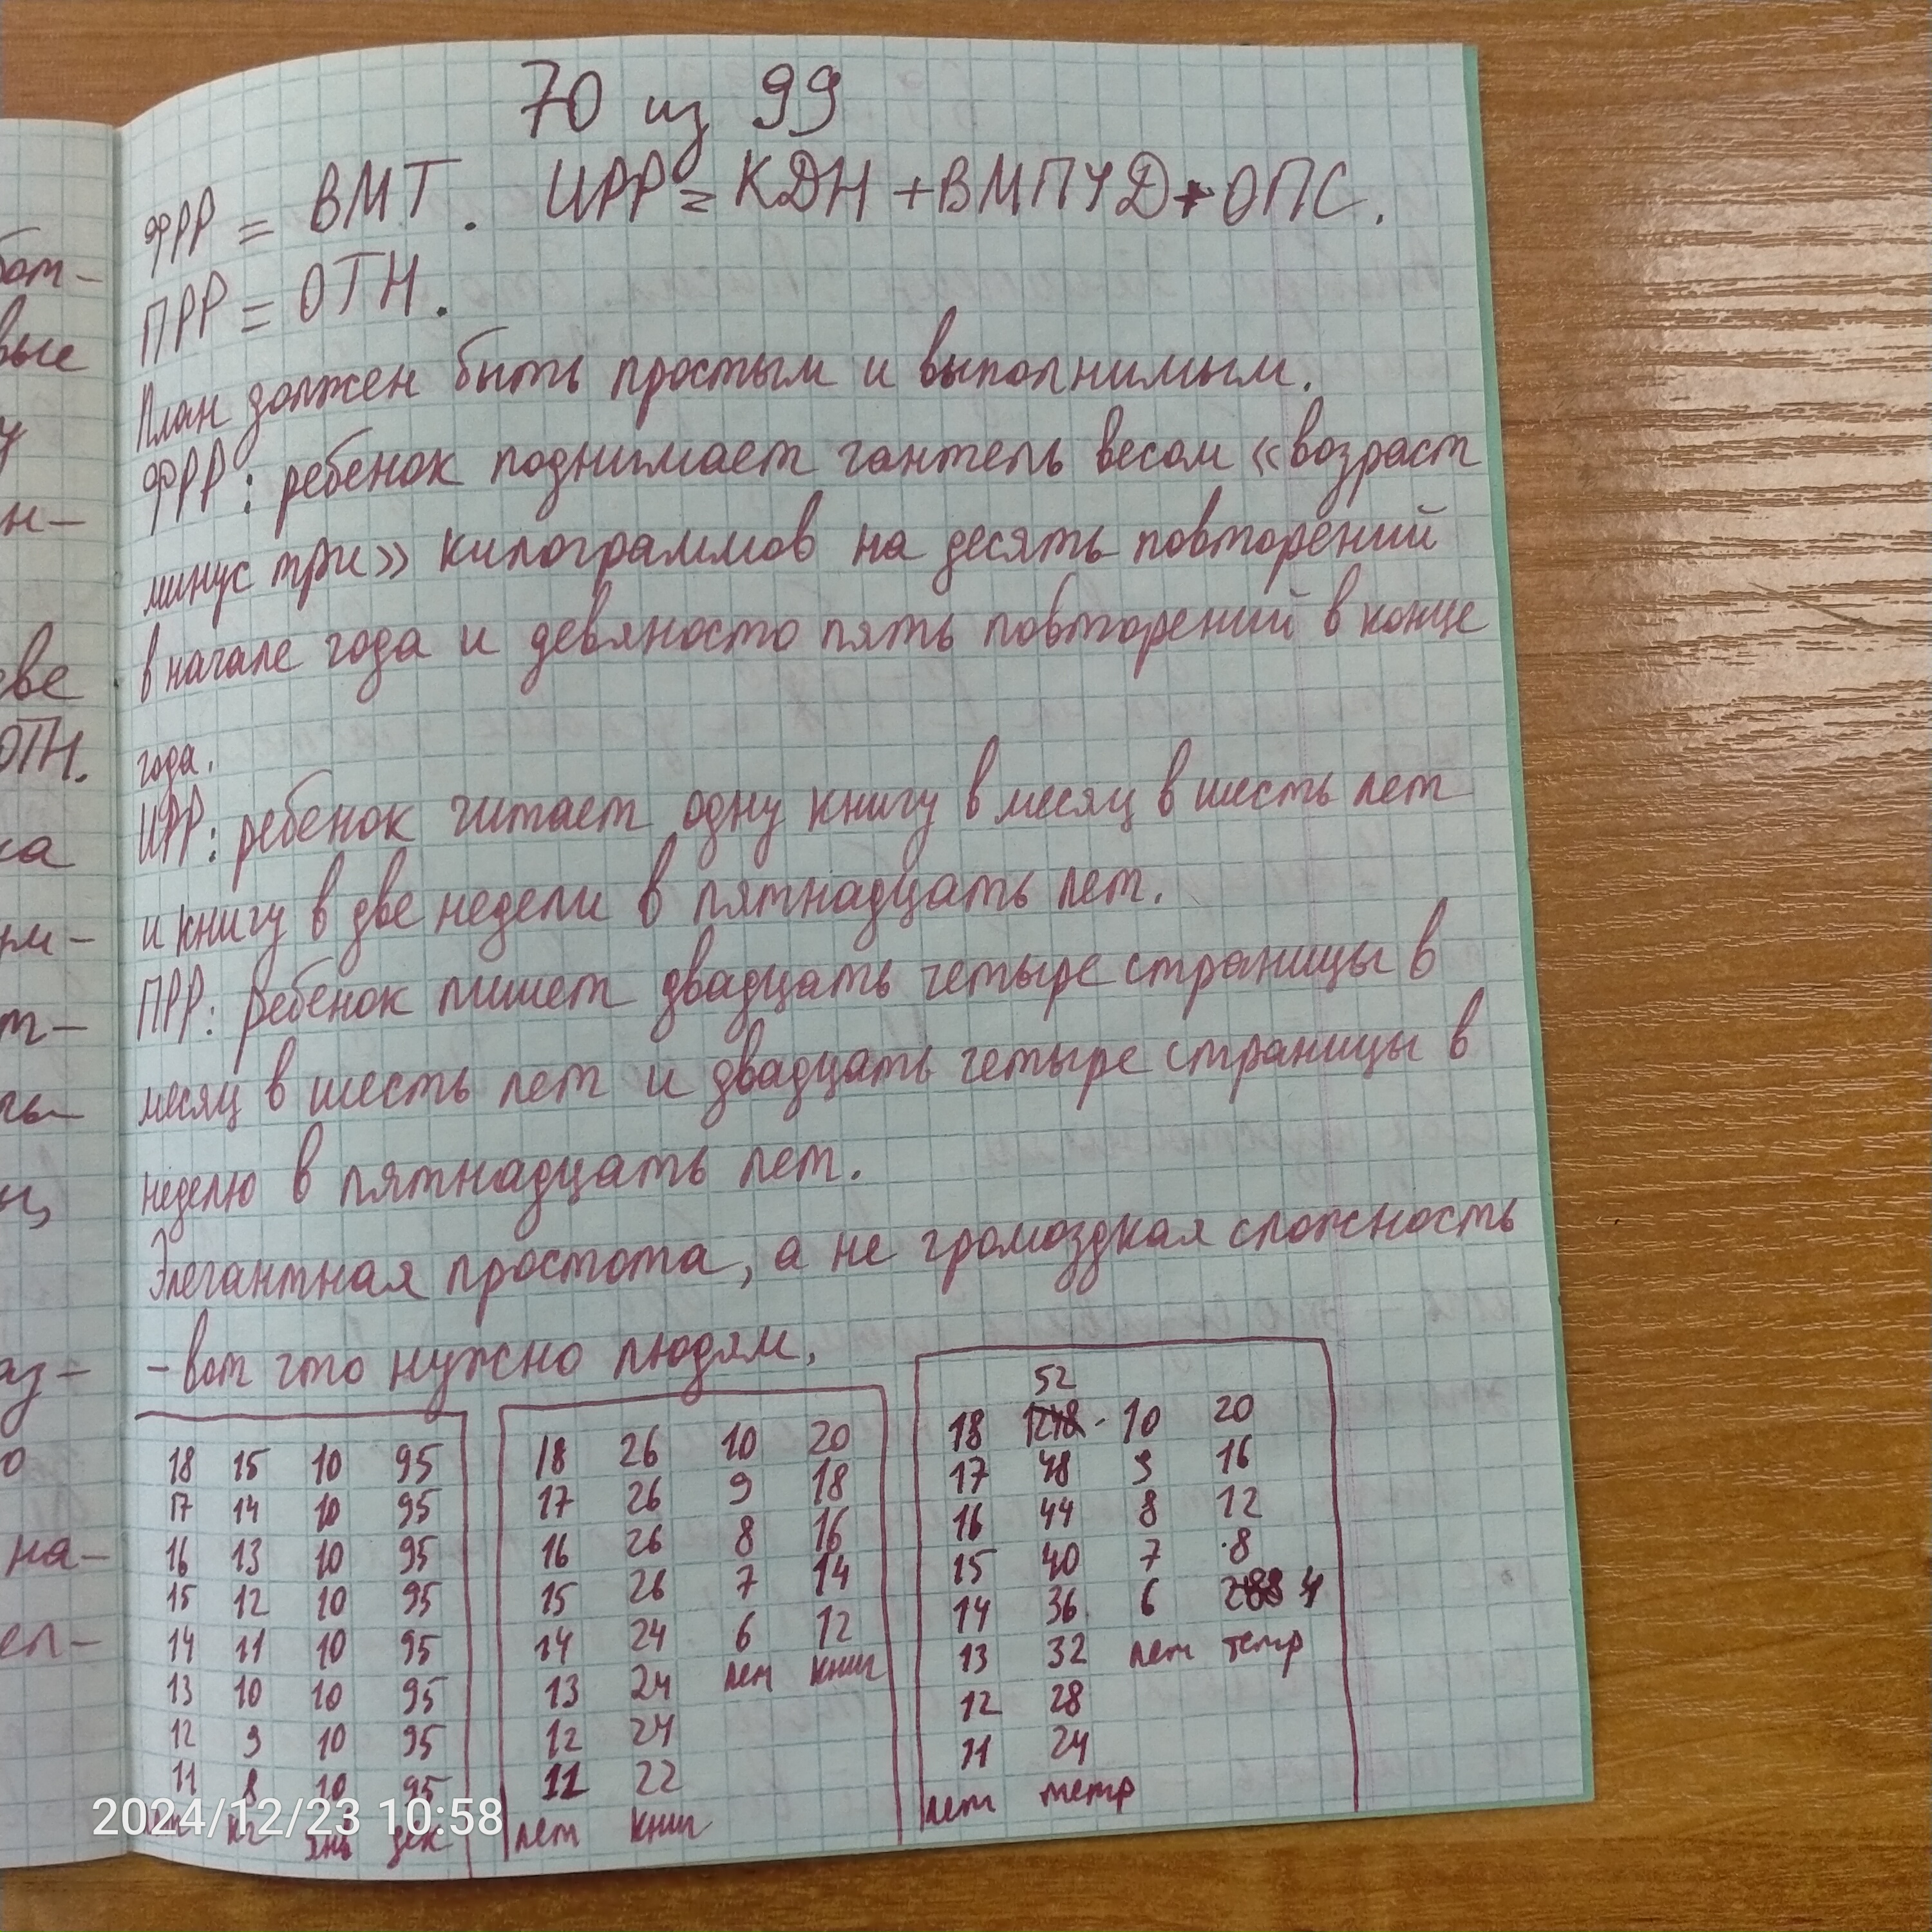 70 из 99
ФРР = ВМТ. ИРР = КДН + ВМПУД + ОПС.
ПРР = ОТН.
План должен быть простым и выполнимым.
ФРР: ребенок поднимает гантель весом «возраст
минус три» килограммов на десять повторений
в начале года и девяносто пять повторений в конце
года.
ИРР: ребенок читает одну книгу в месяц в шесть лет
и книгу в две недели в пятнадцать лет.
ПРР: ребенок пишет двадцать четыре страницы в
месяц в шесть лет и двадцать четыре страницы в
неделю в пятнадцать лет.
Элегантная простота, а не громоздкая сложность
- вот что нужно людям.
18 15 10 95
17 14 10 95
16 13 10 95
15 12 10 95
14 11 10 95
13 10 10 95
12 9 10 95
11 8 10 95
лет кг янв дек
18 26 10 20
17 26 9 18
16 26 8 16
15 26 7 14
14 24 6 12
13 24 лет книг
12 24
11 22
лет книг
52
18 10 20
17 48 9 16
16 44 8 12
15 40 7 8
14 36 6 4
13 32 лет тетр
12 28
11 24
лет тетр
бот-
вые
у
н-
две
ОТН.
ка
т-
аз-
о
на-
ел-
2024/12/23 10:58